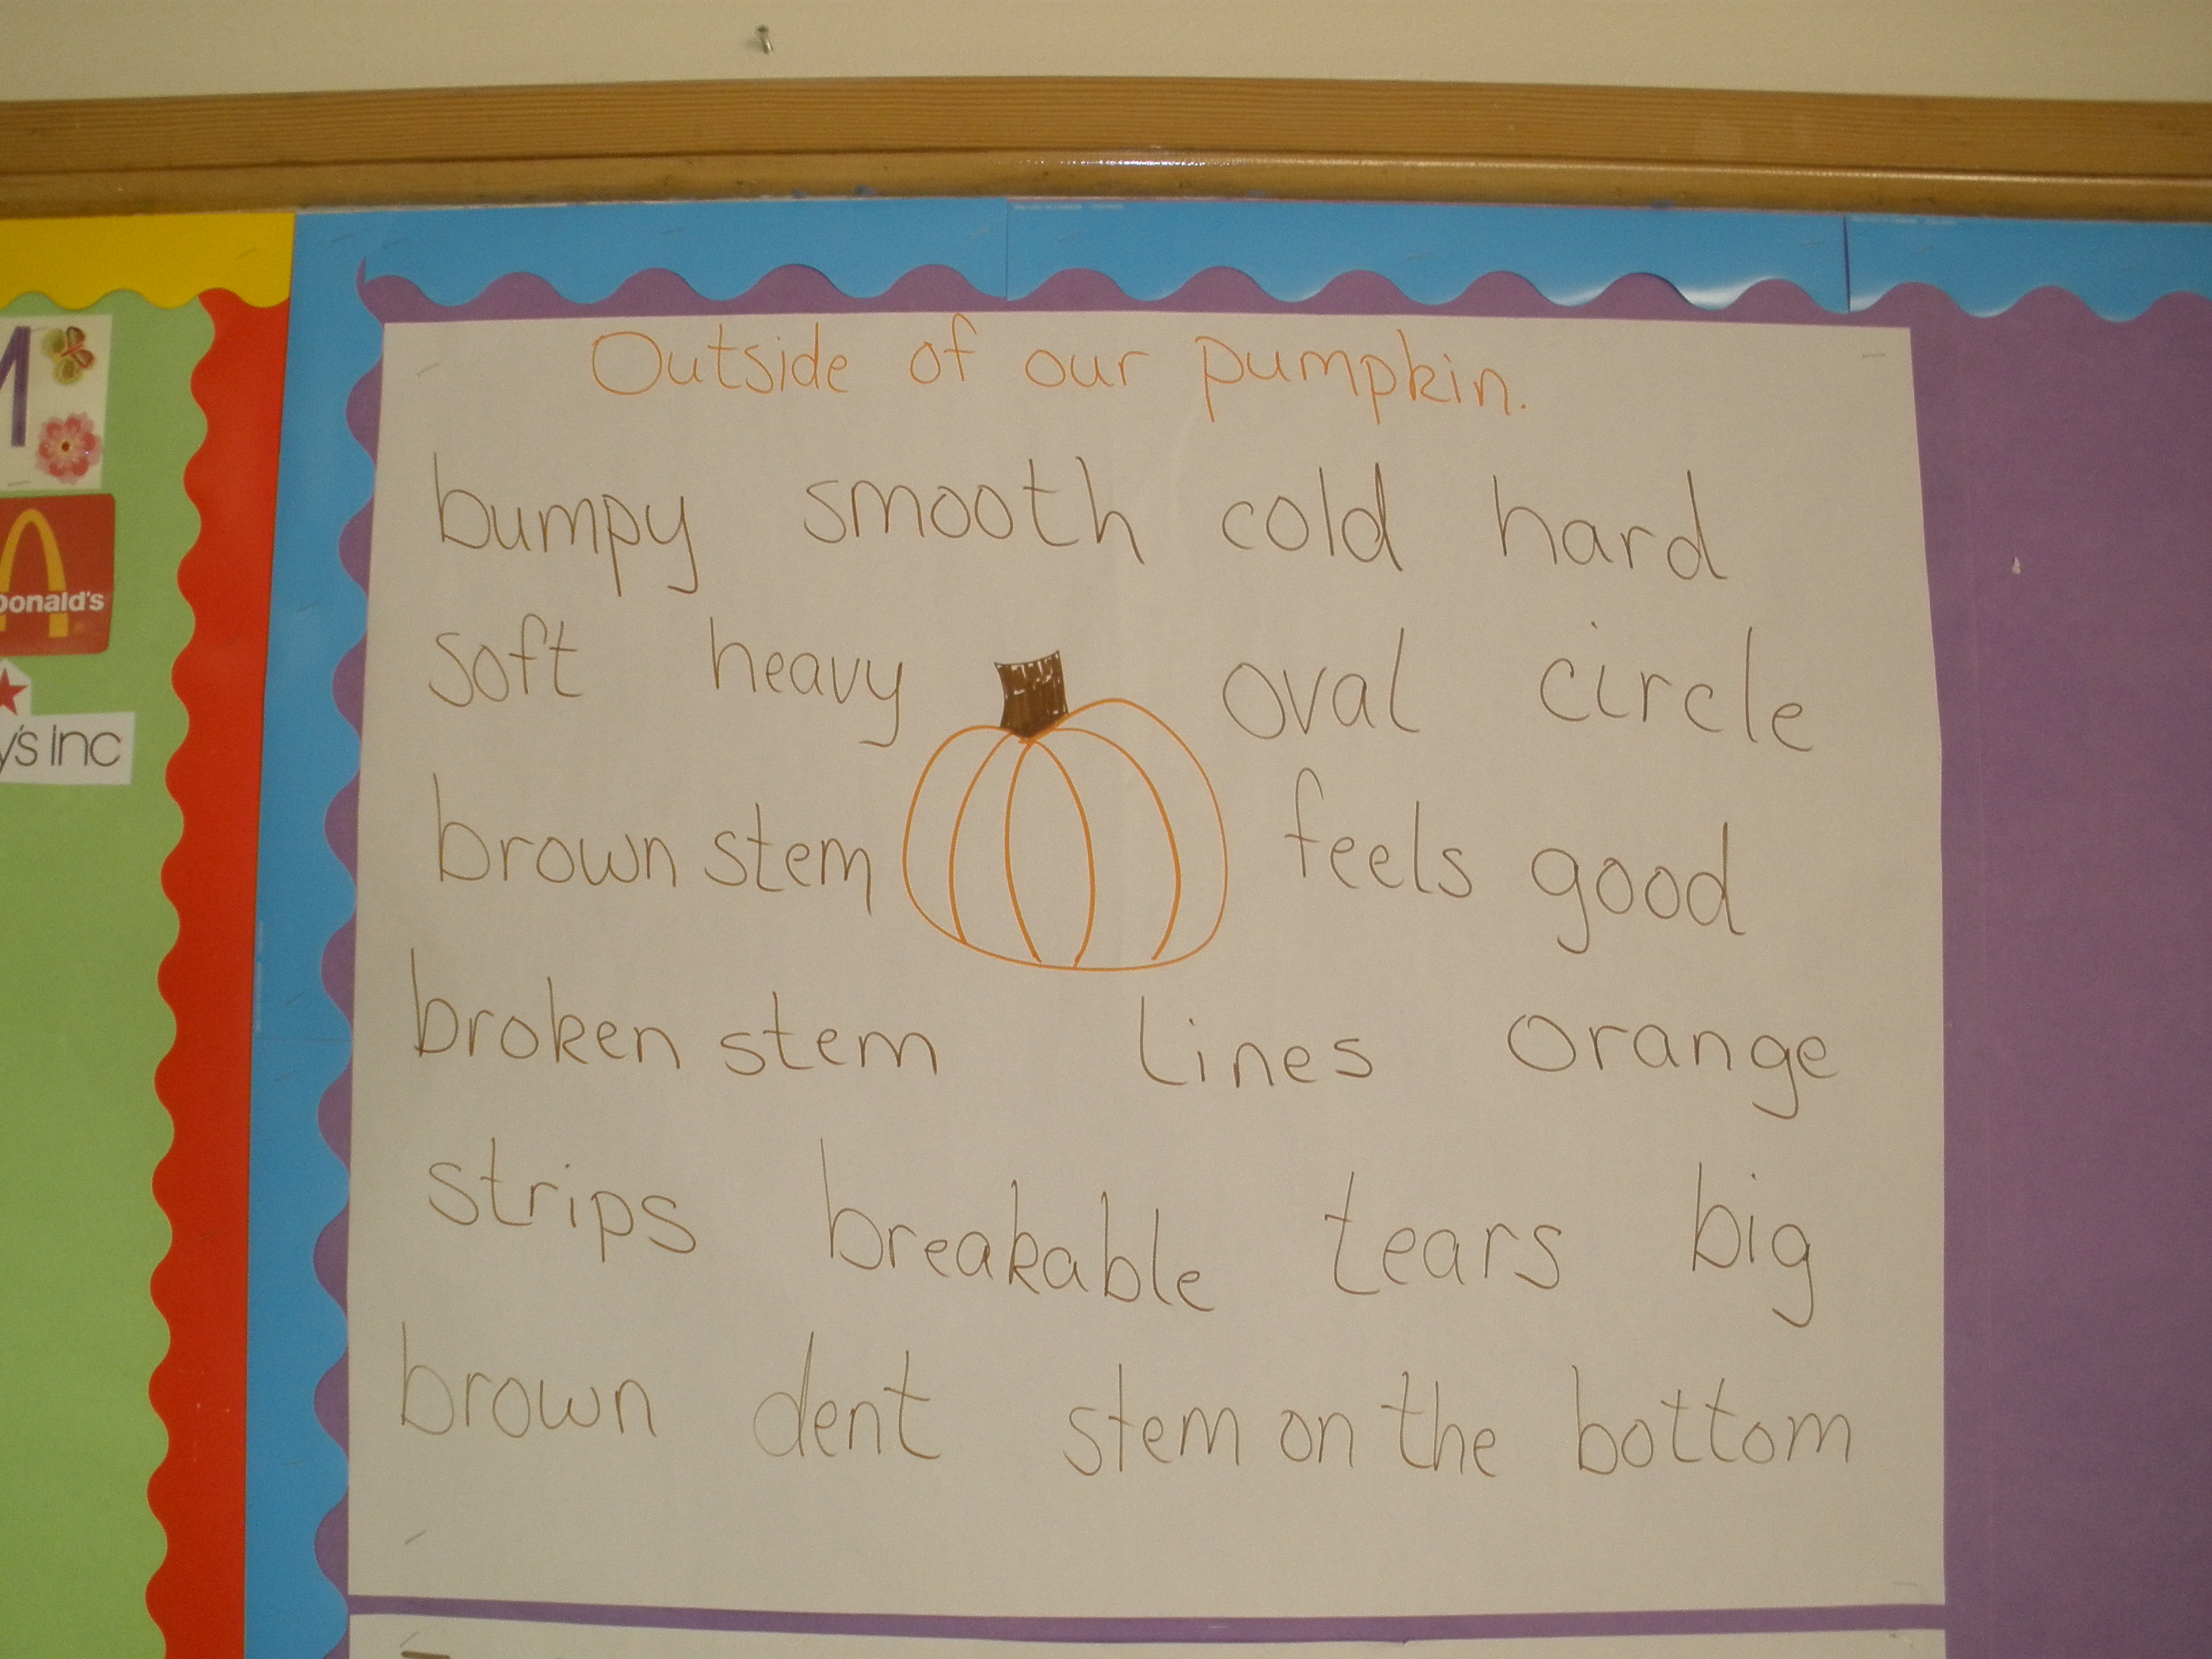 Outside of our pumpkin.
bumpy smooth cold hard
soft heavy oval circle
brown stem feels good
broken stem lines orange
strips breakable tears big
brown dent stem on the bottom
M
Donald's
y's Inc